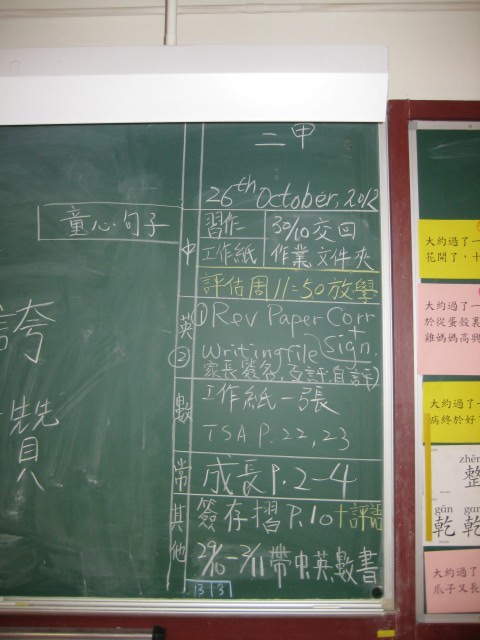 二甲
26th October, 2012
童心句子
中
習作 30/10交回
工作紙 作業文件夾
評估周11:50放學
英
① Rev Paper Corr
+
② Writing file Sign.
家長簽名, 互評, 自評)
數
工作紙一張
TSA P.22,23
常
成長P.2-4
其他
簽存摺P.10+評語
29/10-2/11帶中英數書
13 3
誇
讚
大約過了一
花開了，十
大約過了一
於從蛋殼裏
雞媽媽高興
大約過了一
病終於好了
zhěn
整
gān gān
乾 乾
大約過了
爪子又長